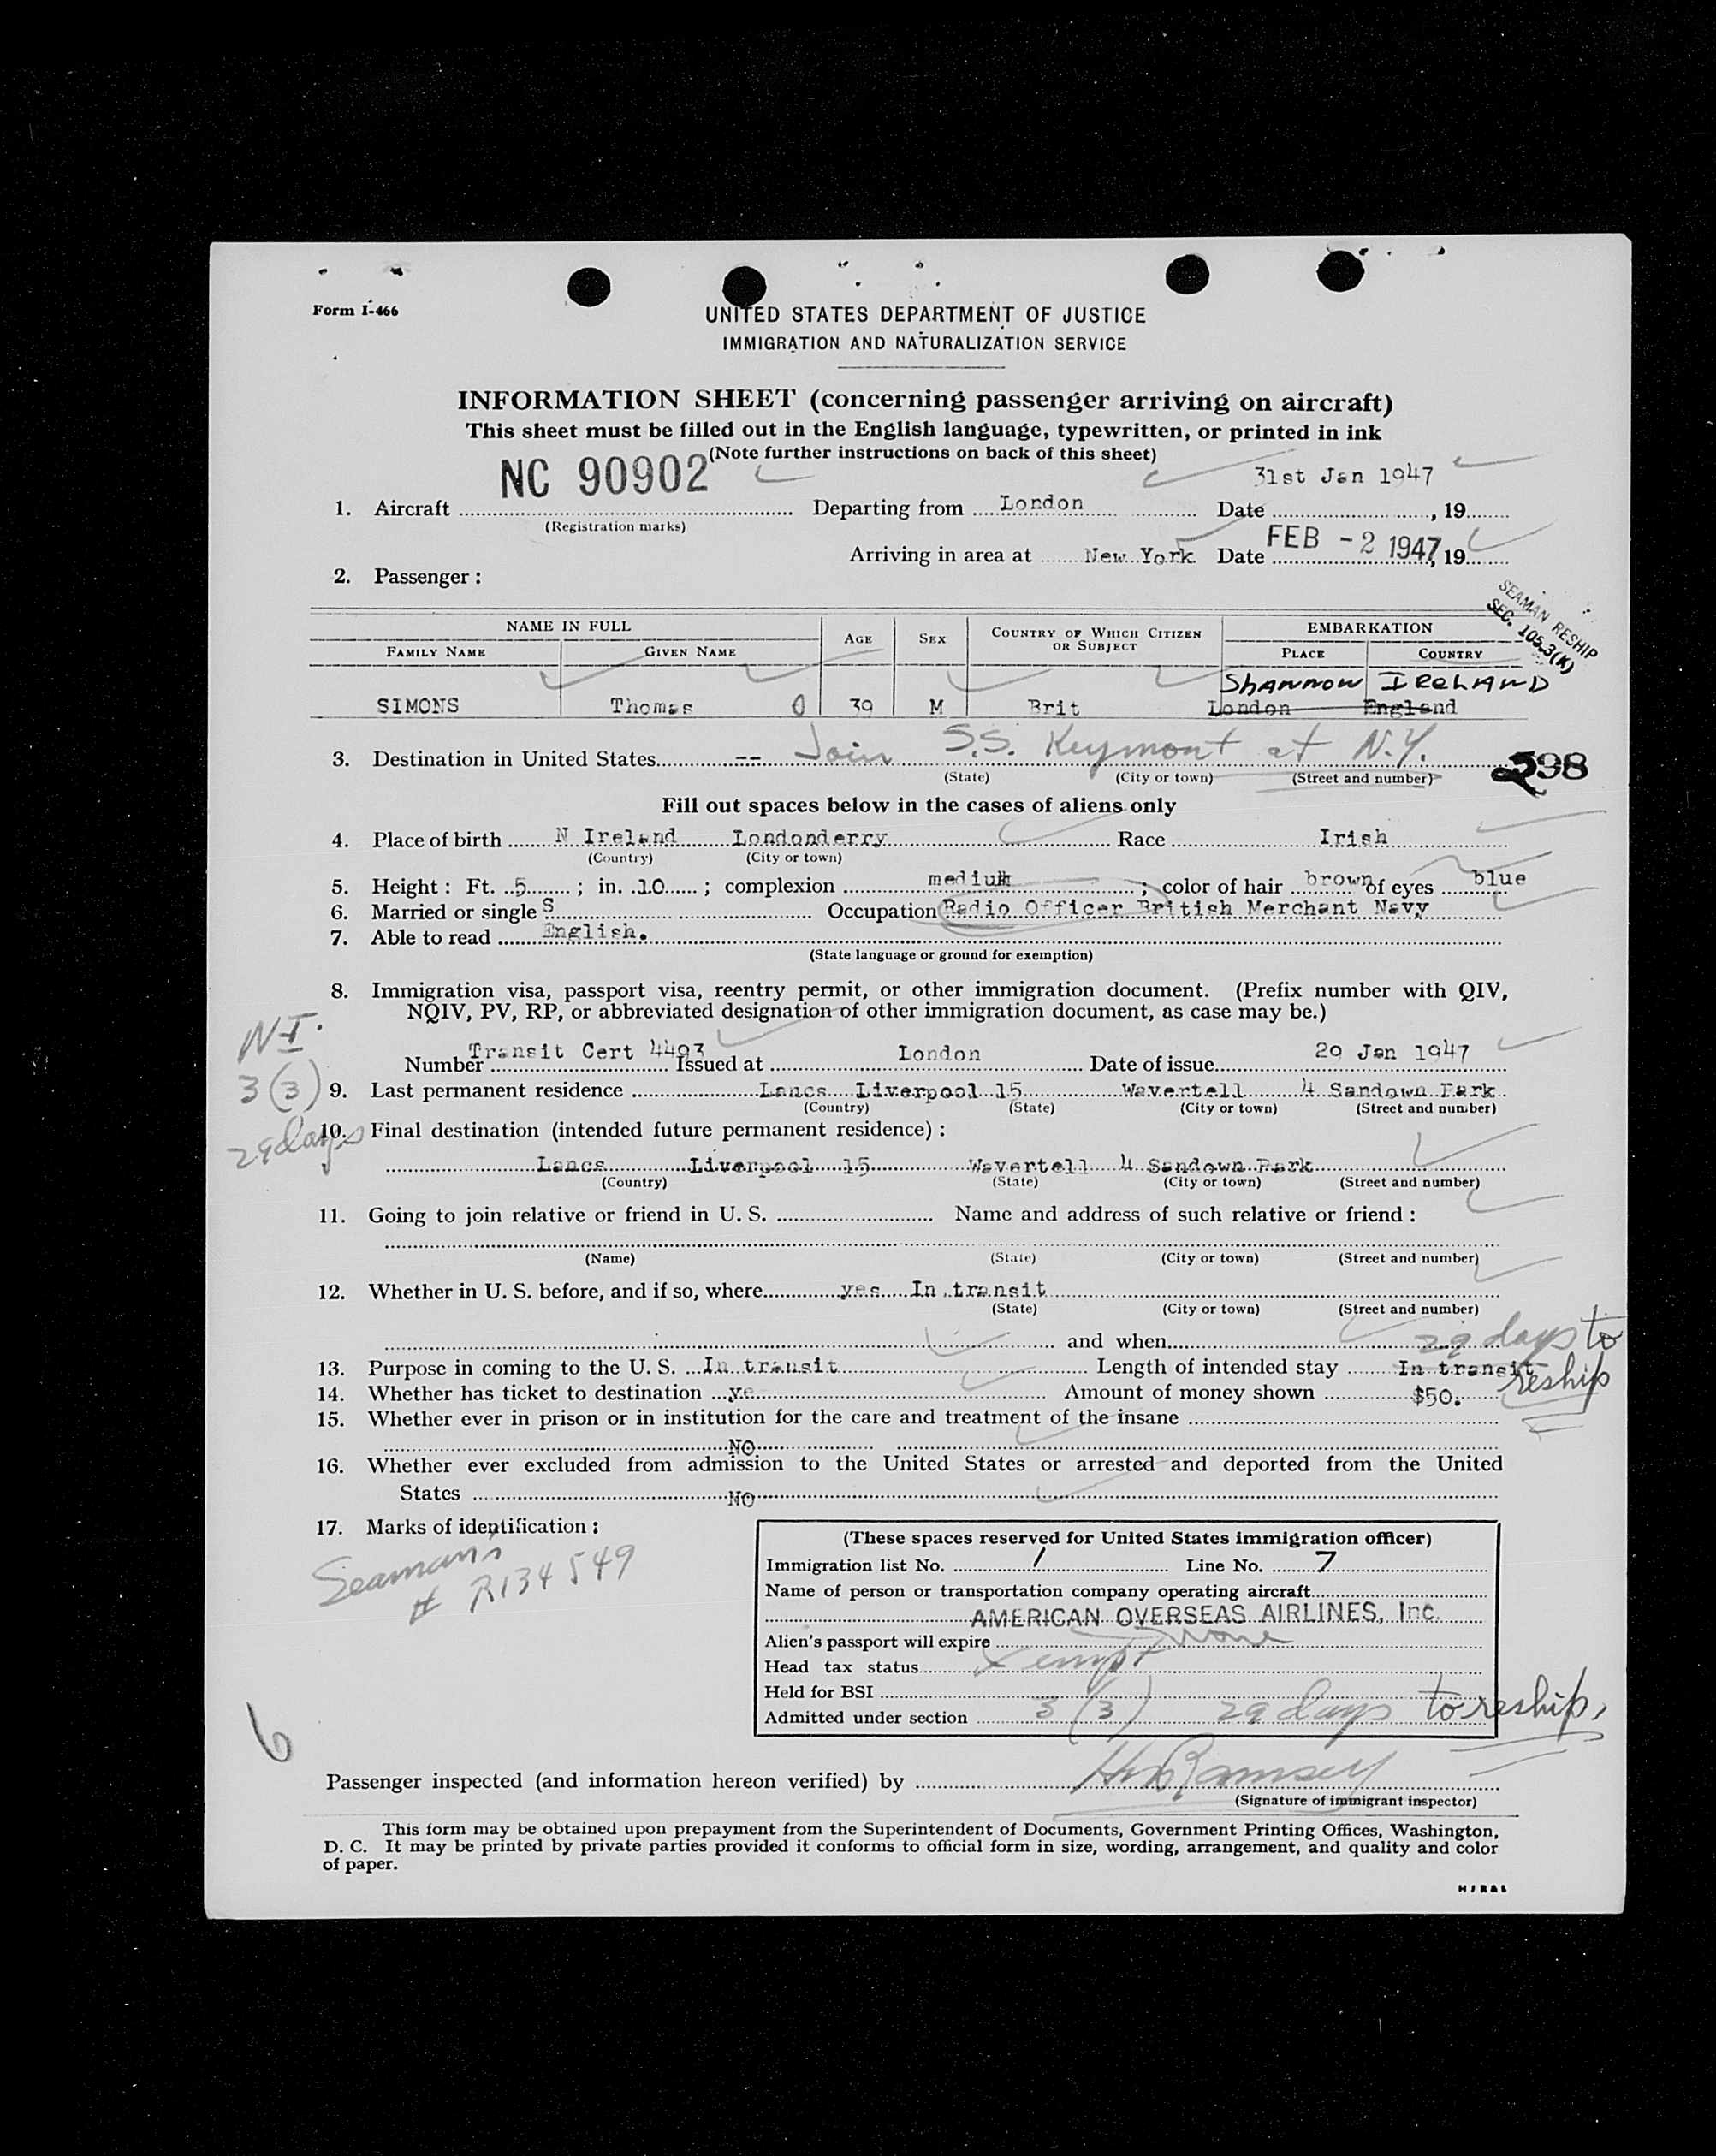 Form I-466
UNITED STATES DEPARTMENT OF JUSTICE
IMMIGRATION AND NATURALIZATION SERVICE
INFORMATION SHEET (concerning passenger arriving on aircraft)
This sheet must be filled out in the English language, typewritten, or printed in ink
(Note further instructions on back of this sheet)
NC 90902
31st Jan 1947
1. Aircraft Departing from London Date , 19
(Registration marks)
Arriving in area at New York Date FEB -2 1947, 19
2. Passenger :
SEAMAN RESHIP
SEC. 105.3(K)
NAME IN FULL AGE SEX COUNTRY OF WHICH CITIZEN OR SUBJECT EMBARKATION
FAMILY NAME GIVEN NAME PLACE COUNTRY
SHANNON IRELAND
SIMONS Thomas 0 39 M Brit London England
3. Destination in United States -- Join S.S. Keymont at N.Y.
(State) (City or town) (Street and number)
598
Fill out spaces below in the cases of aliens only
4. Place of birth N Ireland Londonderry Race Irish
(Country) (City or town)
5. Height : Ft. 5 ; in. 10 ; complexion medium ; color of hair brown of eyes blue
6. Married or single S Occupation Radio Officer British Merchant Navy
7. Able to read English.
(State language or ground for exemption)
8. Immigration visa, passport visa, reentry permit, or other immigration document. (Prefix number with QIV,
NQIV, PV, RP, or abbreviated designation of other immigration document, as case may be.)
N.I.
Number Transit Cert 4493 Issued at London Date of issue 29 Jan 1947
3 (3)
9. Last permanent residence Lancs Liverpool 15 Wavertell 4 Sandown Park
(Country) (State) (City or town) (Street and number)
29 days
10. Final destination (intended future permanent residence) :
Lancs Liverpool 15 Wavertell 4 Sandown Park
(Country) (State) (City or town) (Street and number)
11. Going to join relative or friend in U. S. Name and address of such relative or friend :
(Name) (State) (City or town) (Street and number)
12. Whether in U. S. before, and if so, where yes In transit
(State) (City or town) (Street and number)
and when 29 days to
reship
13. Purpose in coming to the U. S. In transit Length of intended stay In transit
14. Whether has ticket to destination ye Amount of money shown $50.
15. Whether ever in prison or in institution for the care and treatment of the insane
NO
16. Whether ever excluded from admission to the United States or arrested and deported from the United
States NO
17. Marks of identification :
Seaman's
# R134549
(These spaces reserved for United States immigration officer)
Immigration list No. 1 Line No. 7
Name of person or transportation company operating aircraft
AMERICAN OVERSEAS AIRLINES, Inc.
Alien's passport will expire None
Head tax status Xempt
Held for BSI
Admitted under section 3 (3) 29 days to reship,
6
Passenger inspected (and information hereon verified) by Ramsey
(Signature of immigrant inspector)
This form may be obtained upon prepayment from the Superintendent of Documents, Government Printing Offices, Washington,
D. C. It may be printed by private parties provided it conforms to official form in size, wording, arrangement, and quality and color
of paper.